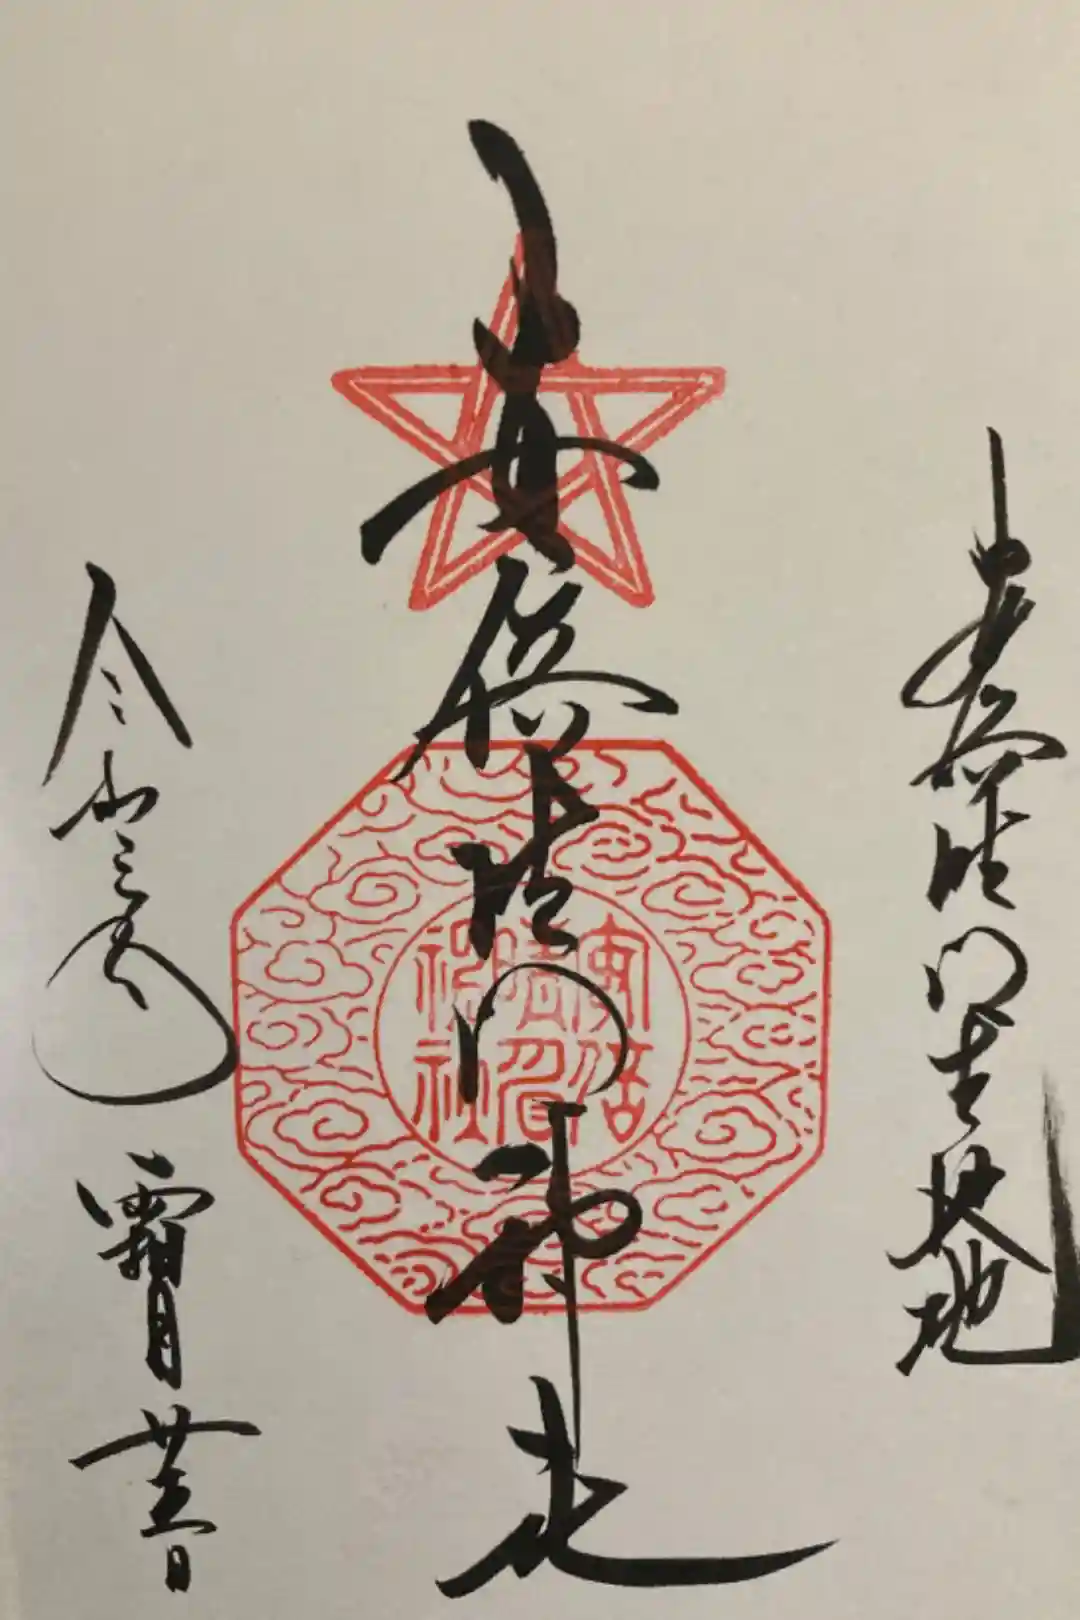 安倍晴明生誕地
安倍晴明神社
安倍
晴明
神社
令和三年 霜月 廿日